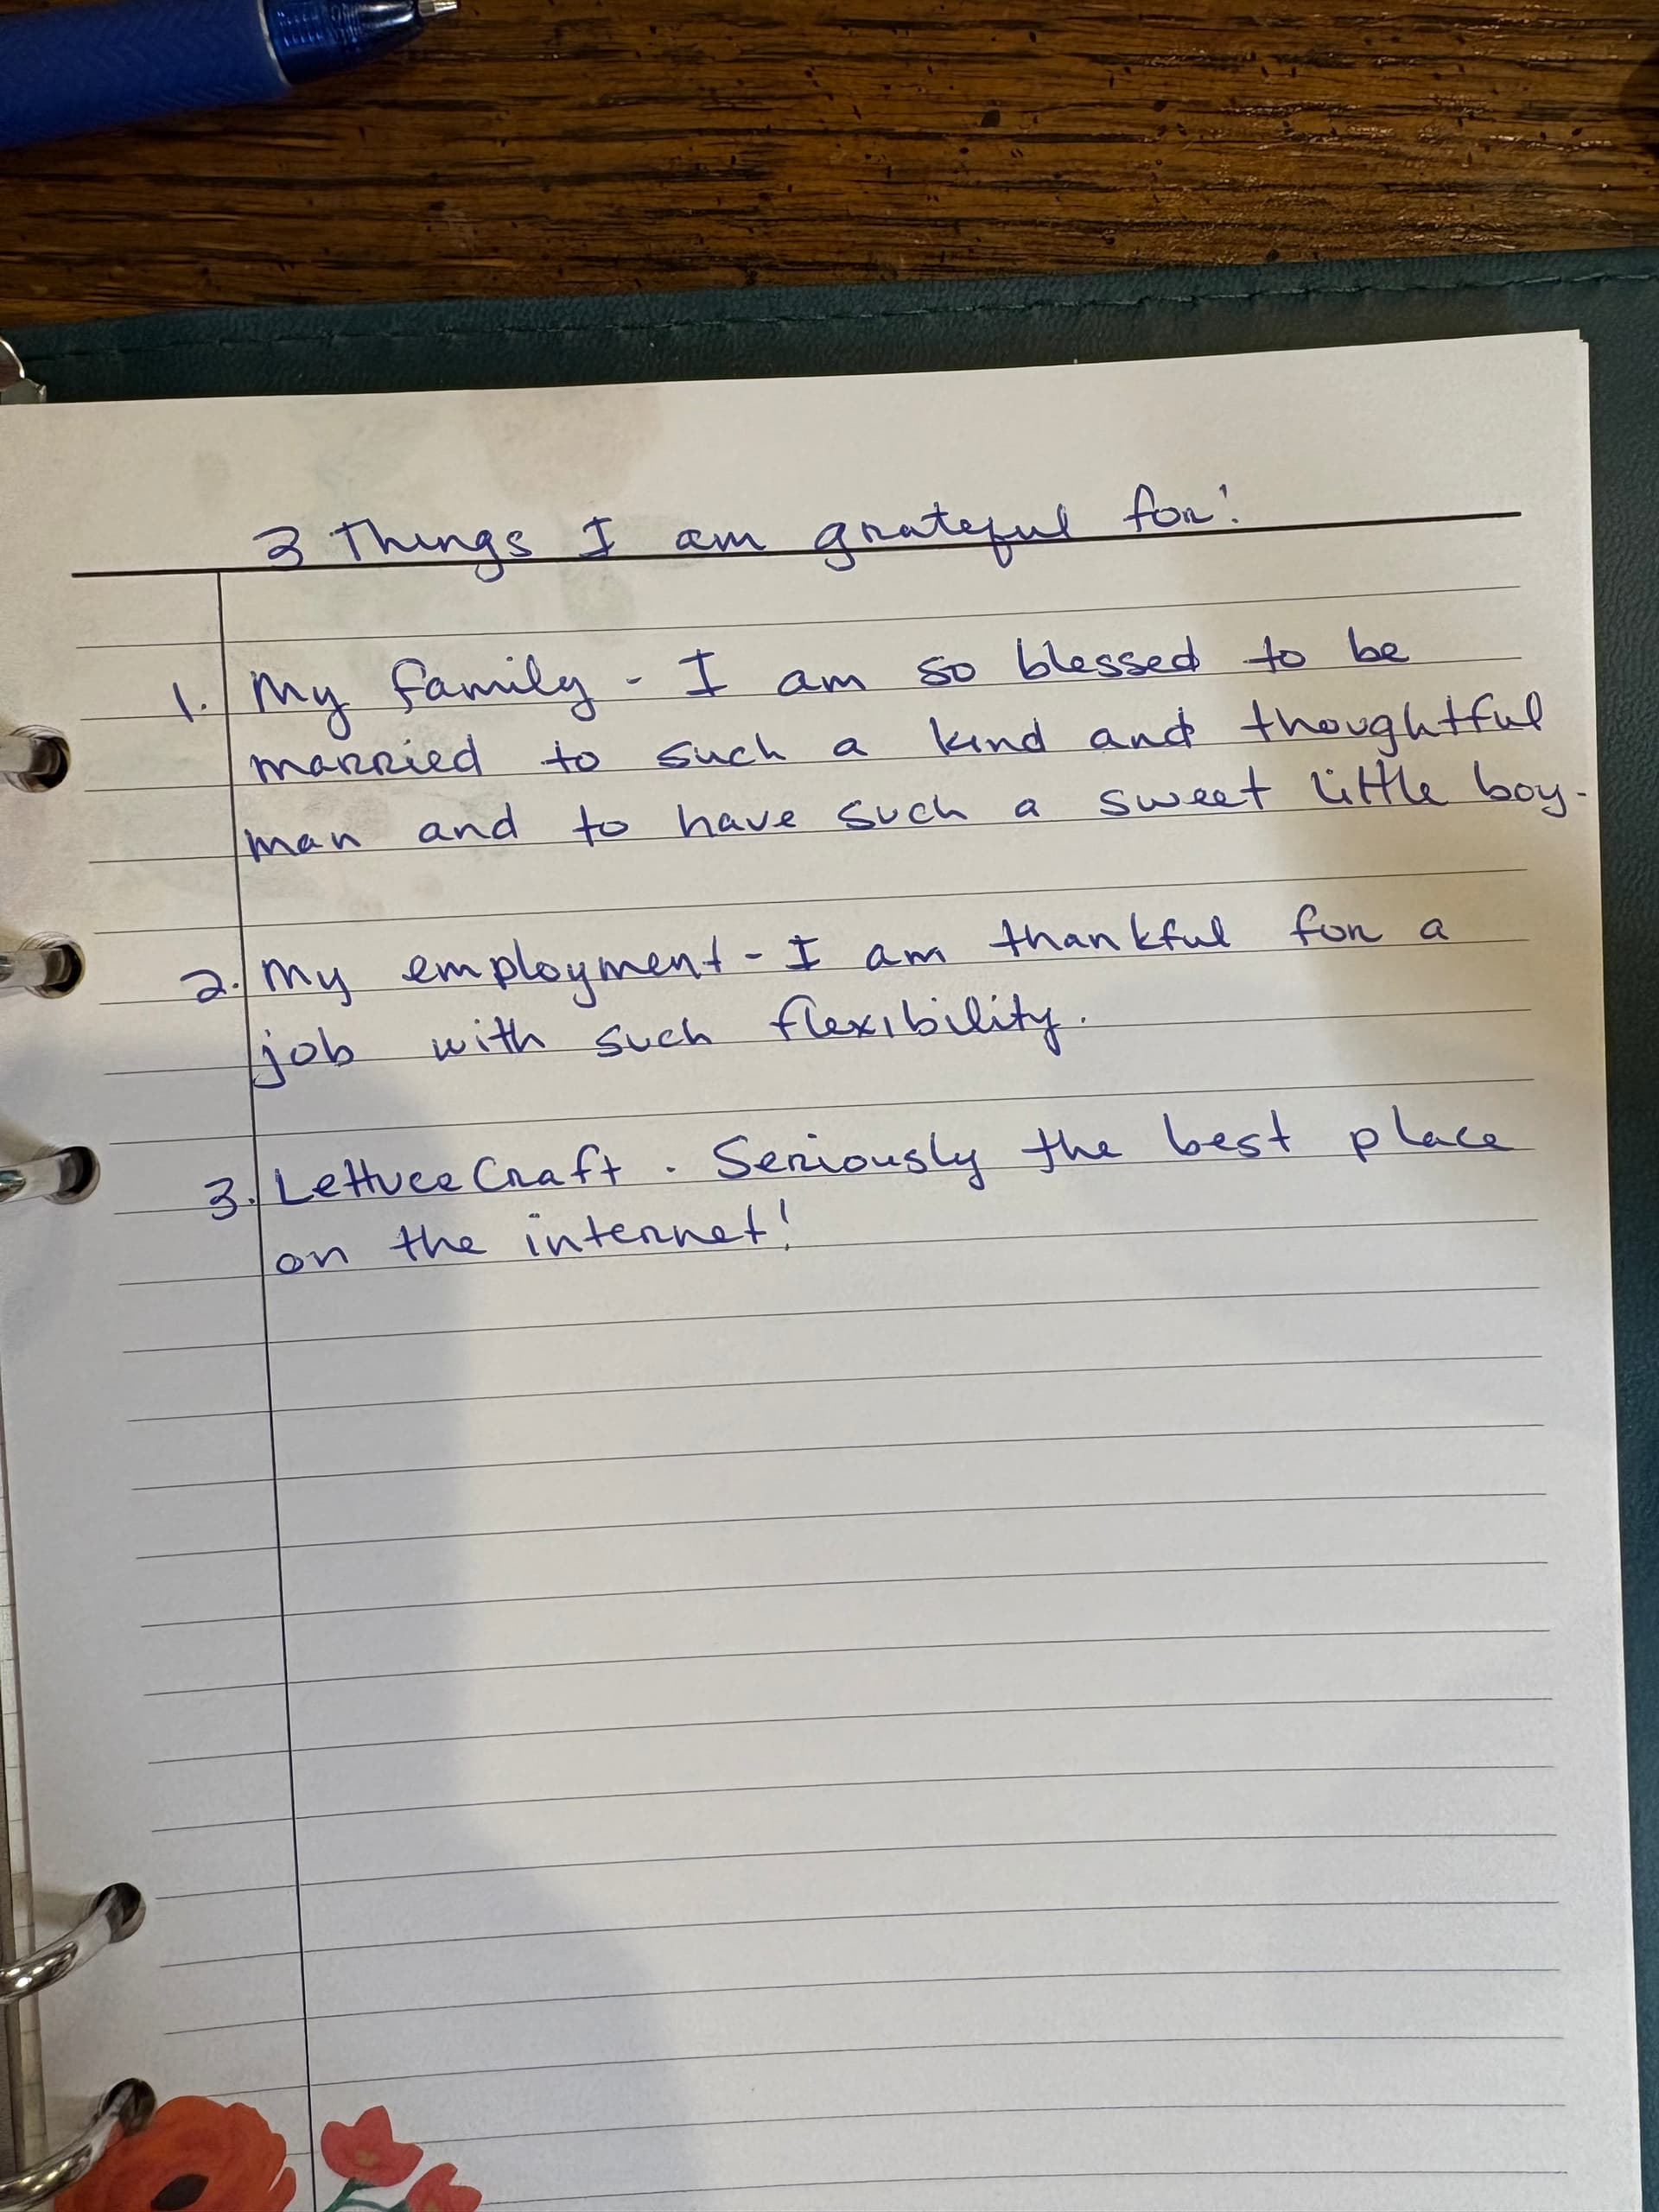 3 Things I am grateful for:
1. My family - I am so blessed to be
married to such a kind and thoughtful
man and to have such a sweet little boy.
2. My employment - I am thankful for a
job with such flexibility.
3. LettuceCraft. Seriously the best place
on the internet!